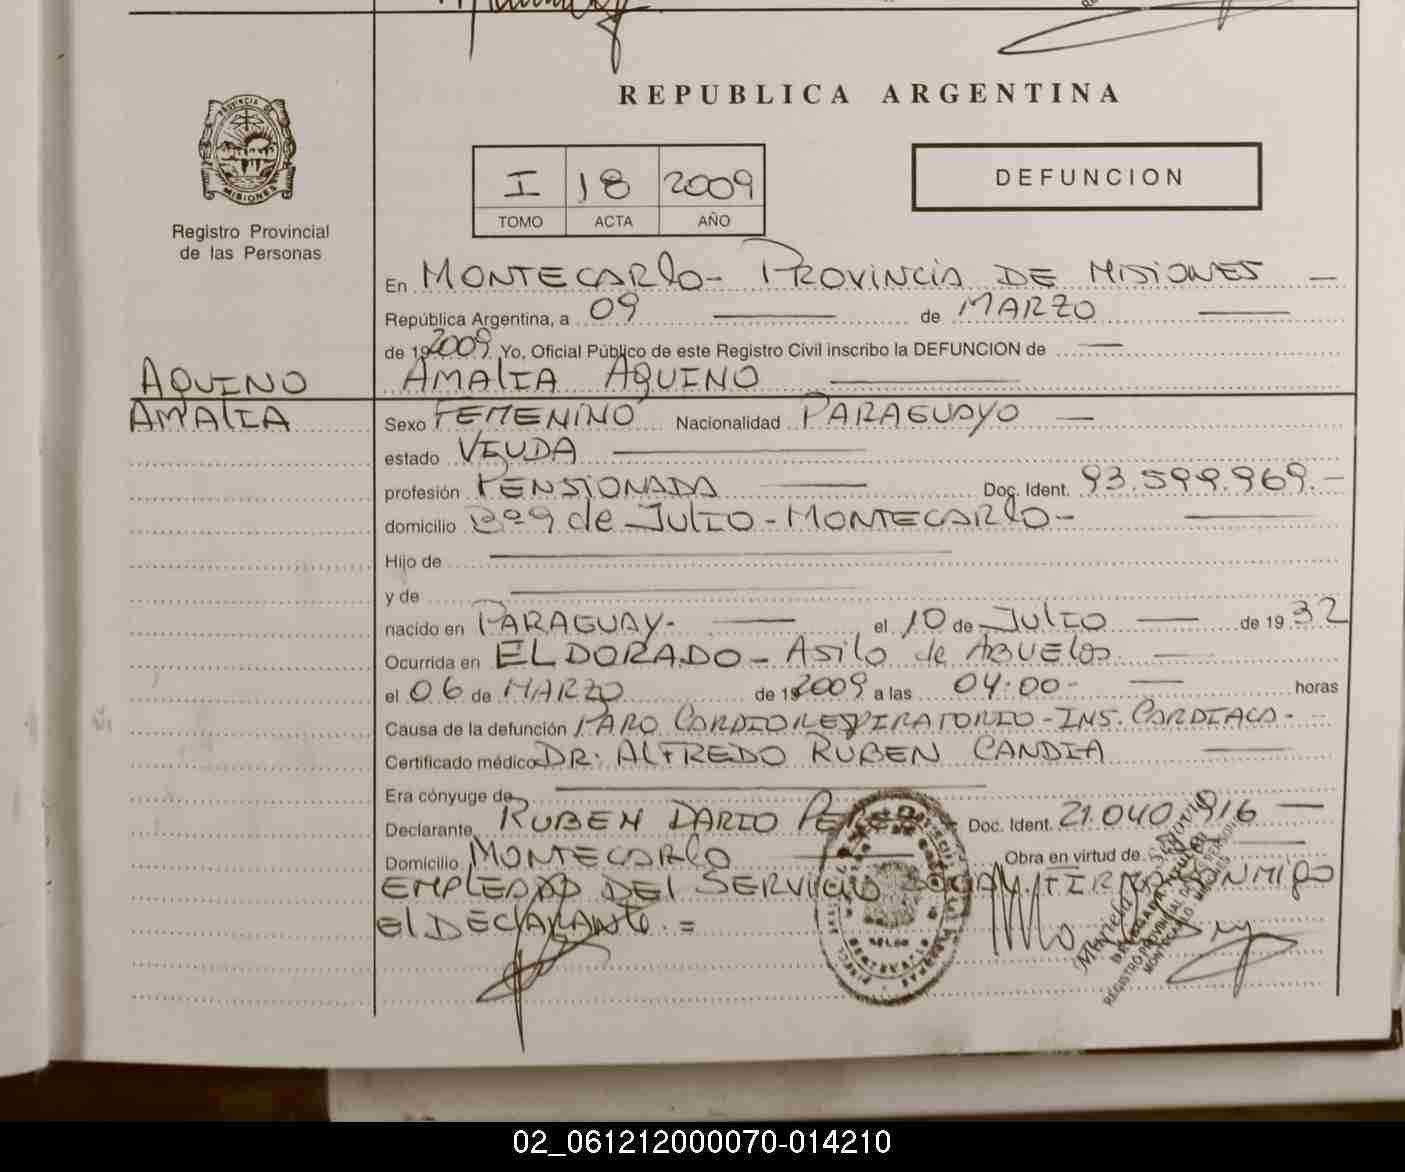 REPUBLICA ARGENTINA
PROVINCIA DE
MISIONES
Registro Provincial
de las Personas
I 18 2009
TOMO ACTA AÑO
DEFUNCION
En MONTECARLO- PROVINCIA DE MISIONES —
República Argentina, a 09 — de MARZO —
de 19 2009 Yo, Oficial Público de este Registro Civil inscribo la DEFUNCION de —
AQUINO
AMALIA
AMALIA AQUINO —
Sexo FEMENINO Nacionalidad PARAGUAYO —
estado VIUDA —
profesión PENSIONADA — Doc. Ident. 93.599.969.-
domicilio Bº 9 de JULIO - MONTECARLO - —
Hijo de —
y de —
nacido en PARAGUAY.- — el 10 de JULIO — de 19 32
Ocurrida en ELDORADO - Asilo de ABUELOS —
el 06 de MARZO de 19 2009 a las 04:00- — horas
Causa de la defunción PARO CARDIORESPIRATORIO - INS. CARDIACA -
Certificado médico DR. ALFREDO RUBEN CANDIA —
Era cónyuge de —
Declarante RUBEN DARIO Doc. Ident. 21.040.916 —
Domicilio MONTECARLO — Obra en virtud de
EMPLEADO DEL SERVICIO FIRMA CONMIGO
El DECLARANTE. =
02_061212000070-014210